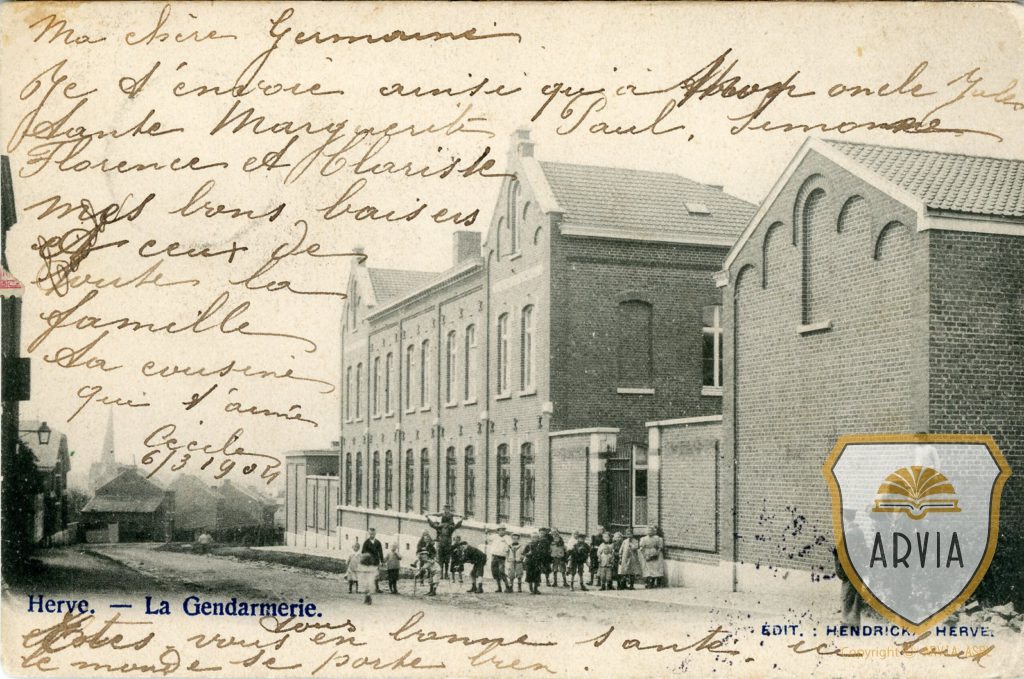 Ma chère Germaine
Je t'envoie ainsi qu'a mon oncle Jules
tante Marguerite Paul, Simonne
Florence et Clarisse
mes bons baisers
et ceux de
toute la
famille
ta cousine
qui t'aime
Cécile
6/3 1904
Herve. — La Gendarmerie.
ÉDIT. : HENDRICK, HERVE.
Etes vous tous en bonne santé. ici
le monde se porte bien.
ARVIA
Copyright © ARVIA ASBL